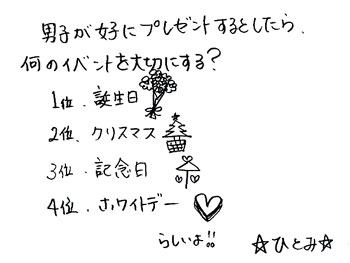 男子が好にプレゼントするとしたら、
何のイベントを大切にする?
1位.誕生日
2位.クリスマス
3位.記念日
4位.ホワイトデー
らしいよ!!
☆ひとみ☆